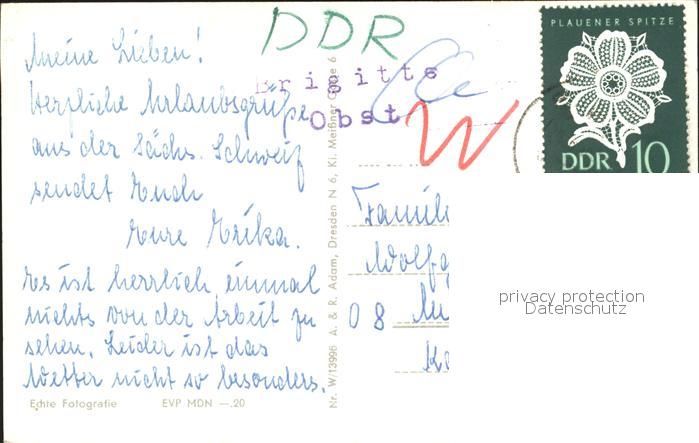 Meine Lieben!
Herzliche Urlaubsgrüße
aus der Sächs. Schweiz
sendet Euch
Eure Erika.
Es ist herrlich, einmal
nichts von der Arbeit zu
sehen. Leider ist das
Wetter nicht so besonders.
Echte Fotografie EVP MDN —.20
Nr. W/13996 A. & R. Adam, Dresden N 6, Kl. Meißner Gasse 6
DDR
Brigitte
Obst
W
PLAUENER SPITZE
DDR 10
Famili
Wolfg
08
privacy protection
Datenschutz